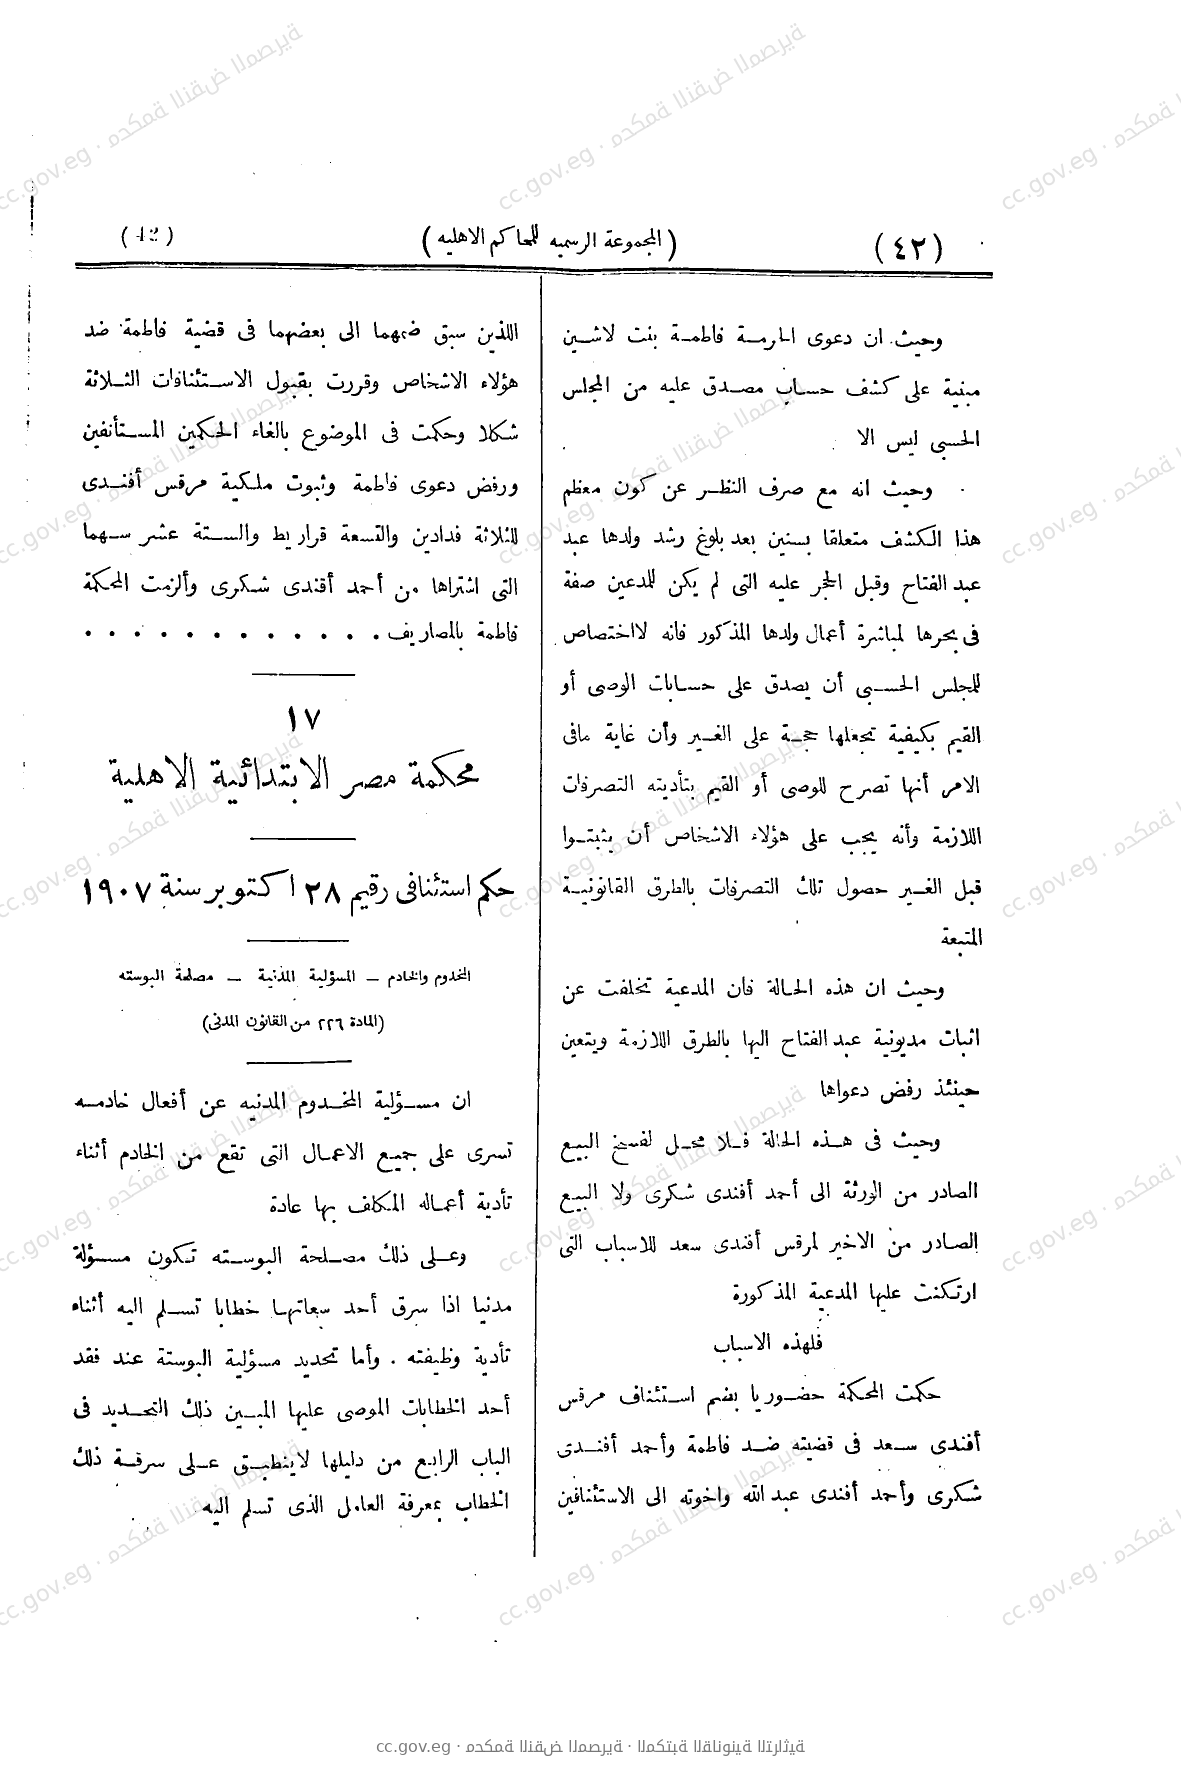 (٤٢)
(المجموعة الرسميه للمحاكم الاهليه)
(42)
وحيث ان دعوى الحرمة فاطمة بنت لاشين
مبنية على كشف حساب مصدق عليه من المجلس
الحسبى ليس الا
وحيث انه مع صرف النظر عن كون معظم
هذا الكشف متعلقا بسنين بعد بلوغ رشد ولدها عبد
عبد الفتاح وقبل الحجر عليه التى لم يكن للمدعين صفة
فى بحرها لمباشرة أعمال ولدها المذكور فانه لااختصاص
للمجلس الحسبى أن يصدق على حسابات الوصى أو
القيم بكيفية تجعلها حجة على الغير وأن غاية مافى
الامر أنها تصرح للوصى أو القيم بتأديته التصرفات
اللازمة وأنه يجب على هؤلاء الاشخاص أن يثبتوا
قبل الغير حصول تلك التصرفات بالطرق القانونية
المتبعة
وحيث ان هذه الحالة فان المدعية تخلفت عن
اثبات مديونية عبد الفتاح اليها بالطرق اللازمة ويتعين
حينئذ رفض دعواها
وحيث فى هذه الحالة فلا محل لفسخ البيع
الصادر من الورثة الى أحمد أفندى شكرى ولا البيع
الصادر من الاخير لمرقس أفندى سعد للاسباب التى
ارتكنت عليها المدعية المذكورة
فلهذه الاسباب
حكمت المحكمة حضوريا بضم استئناف مرقس
أفندى سعد فى قضيته ضد فاطمة وأحمد أفندى
شكرى وأحمد أفندى عبد الله واخوته الى الاستئنافين
اللذين سبق ضمهما الى بعضهما فى قضية فاطمة ضد
هؤلاء الاشخاص وقررت بقبول الاستئنافات الثلاثة
شكلا وحكمت فى الموضوع بالغاء الحكمين المستأنفين
ورفض دعوى فاطمة وثبوت ملكية مرقس أفندى
للثلاثة فدادين والتسعة قراريط والستة عشر سهما
التى اشتراها من أحمد أفندى شكرى وألزمت المحكمة
فاطمة بالمصاريف . . . . . . . . . . . .
١٧
محكمة مصر الابتدائية الاهلية
حكم استئنافى رقيم ٢٨ اكتوبر سنة ١٩٠٧
المخدوم والخادم – المسؤلية المدنية – مصلحة البوسته
(المادة ٢٢٦ من القانون المدنى)
ان مسؤلية المخدوم المدنيه عن أفعال خادمه
تسرى على جميع الاعمال التى تقع من الخادم أثناء
تأدية أعماله المكلف بها عادة
وعلى ذلك مصلحة البوسته تكون مسؤلة
مدنيا اذا سرق أحد سعاتها خطابا تسلم اليه أثناء
تأدية وظيفته . وأما تحديد مسؤلية البوستة عند فقد
أحد الخطابات الموصى عليها المبين ذلك التحديد فى
الباب الرابع من دليلها لاينطبق على سرقة ذلك
الخطاب بمعرفة العامل الذى تسلم اليه
cc.gov.eg · محكمة النقض المصرية · المكتبة القانونية التراثية